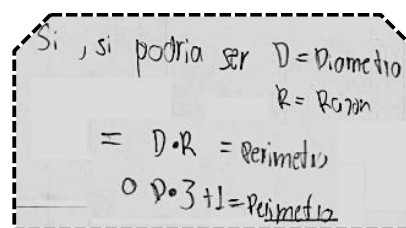 Si , si podria ser D = Diametro
R = Razon
= D•R = Perimetro
O D•3+1=Perimetro